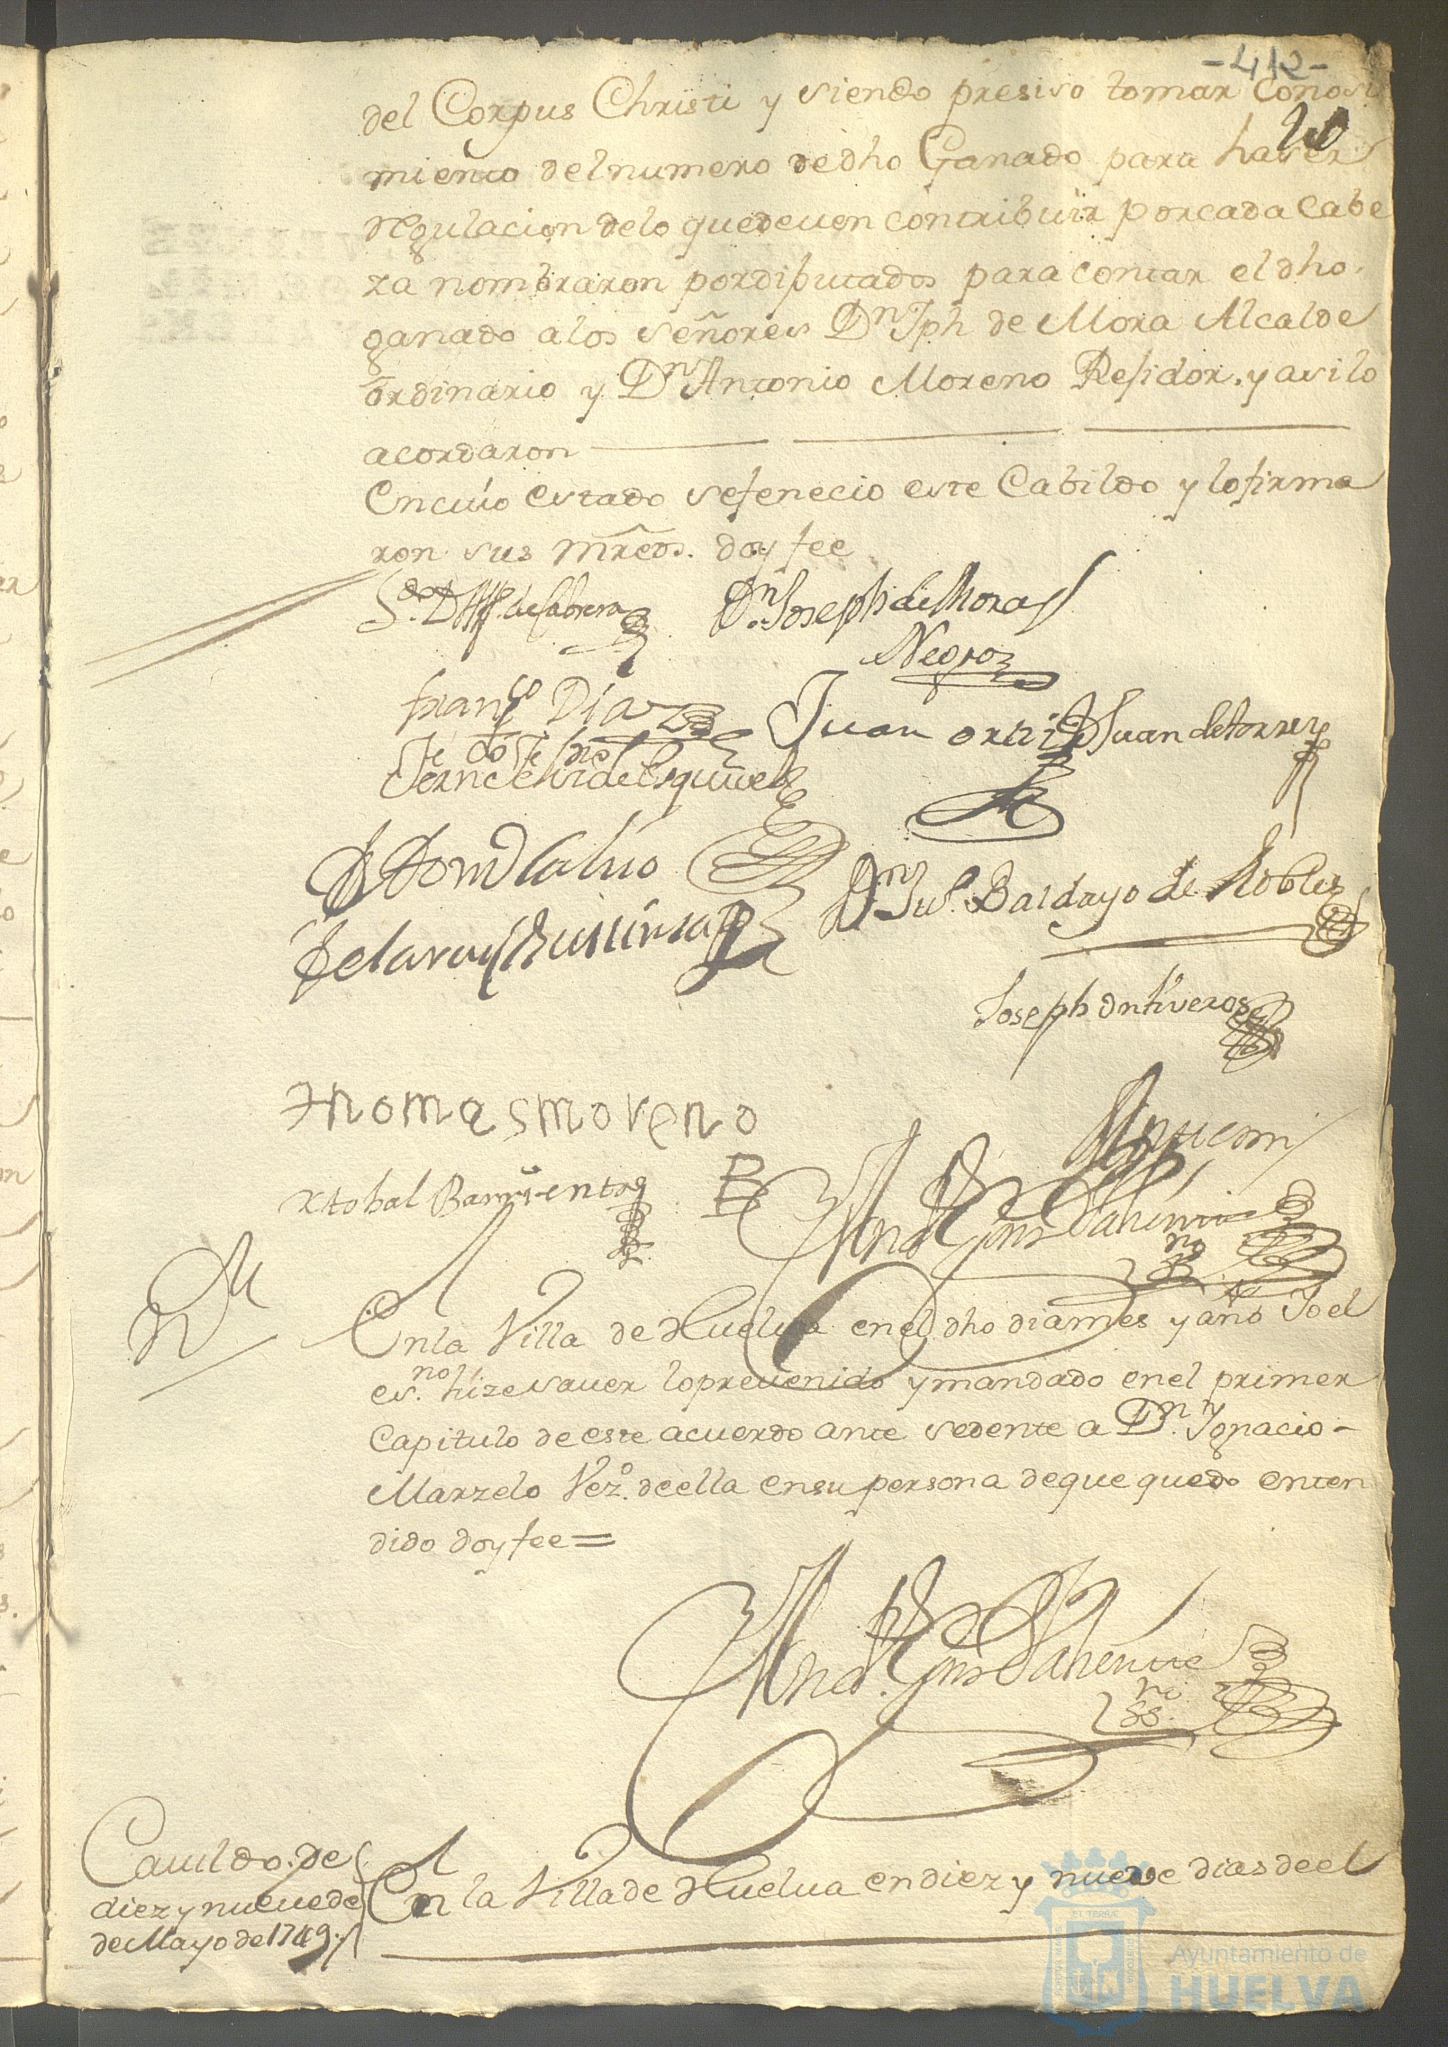 -412-
20
del Corpus Christi y siendo presiso tomar Conosi
miento del numero de dho Ganado para haser
regulacion delo que deven contribuir por cada Cabe
za nombraron por diputados para contar el dho.
ganado a los señores Dn Jph de Mora Alcalde
ordinario y Dn Antonio Moreno Rexidor. y asilo
acordaron
En cuio estado se fenecio este Cabildo y lo firma
ron sus mrcds. doy fee
de Cabrera
Dn. Joseph de Mora
Negro
Franco Diaz
Juan orti
Juan de torres
de Esquivel
Calvo
Dn Juo. Baldayo de Robles
Joseph Ontiveros
Thomas moreno
Xtobal Barrientos
Ante mi
En la Villa de Huelva en el dho dia mes y año Yo el
esno. hize saver lo prevenido y mandado en el primer
Capitulo de este acuerdo antesedente a Dn. Ygnacio -
Marzelo Vezo. de ella en su persona de que quedo enten
dido doy fee =
Cavildo. de
diez y nueve de
de Mayo de 1749.
En la Villa de Huelva en diez y nueve dias de el
Ayuntamiento de
HUELVA